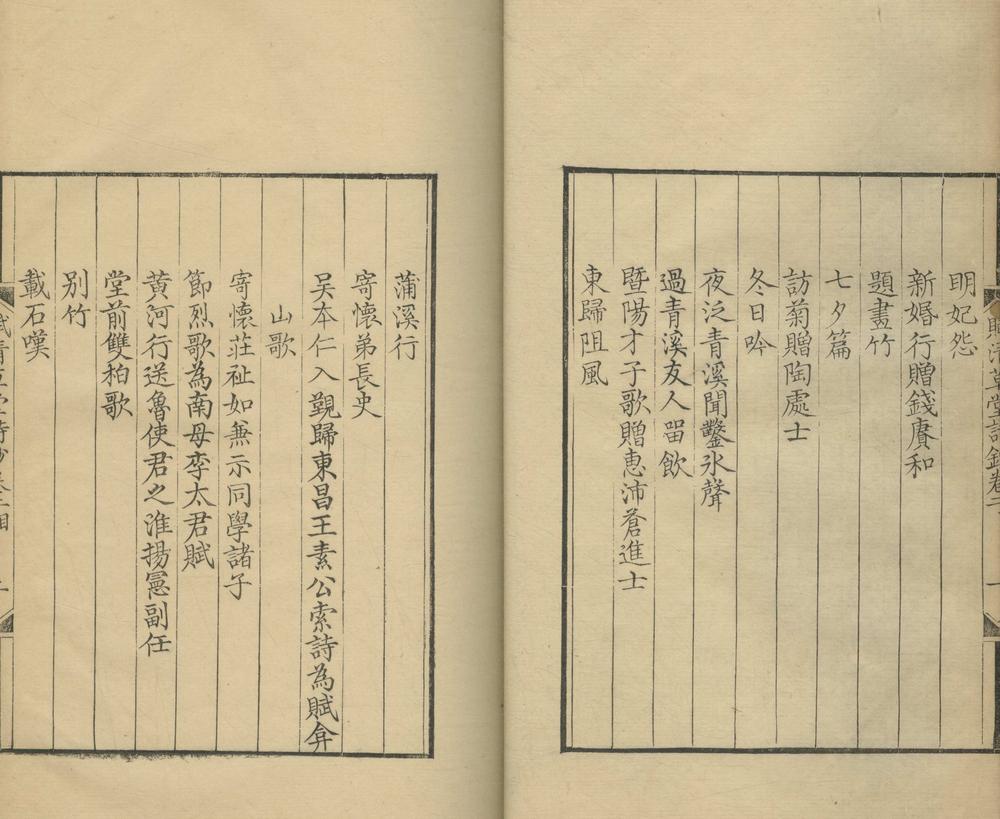 明妃怨
新婚行贈錢賡和
題畫竹
七夕篇
訪菊贈陶處士
冬日吟
夜泛青溪聞鑿氷聲
過青溪友人畱飲
暨陽才子歌贈惠沛蒼進士
東歸阻風
蒲溪行
寄懷弟長史
吴本仁入覲歸東昌王素公索詩為賦弇
山歌
寄懷莊祉如兼示同學諸子
節烈歌為南母李太君賦
黄河行送魯使君之淮揚憲副任
堂前雙䄸歌
别竹
載石嘆